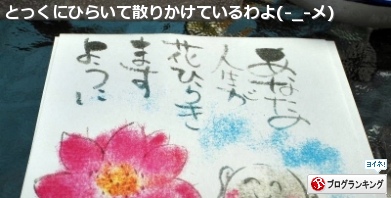 とっくにひらいて散りかけているわよ(-_-メ)
あなたの
人生が
花ひらき
ます
ように
ヨイネ!
ブログランキング